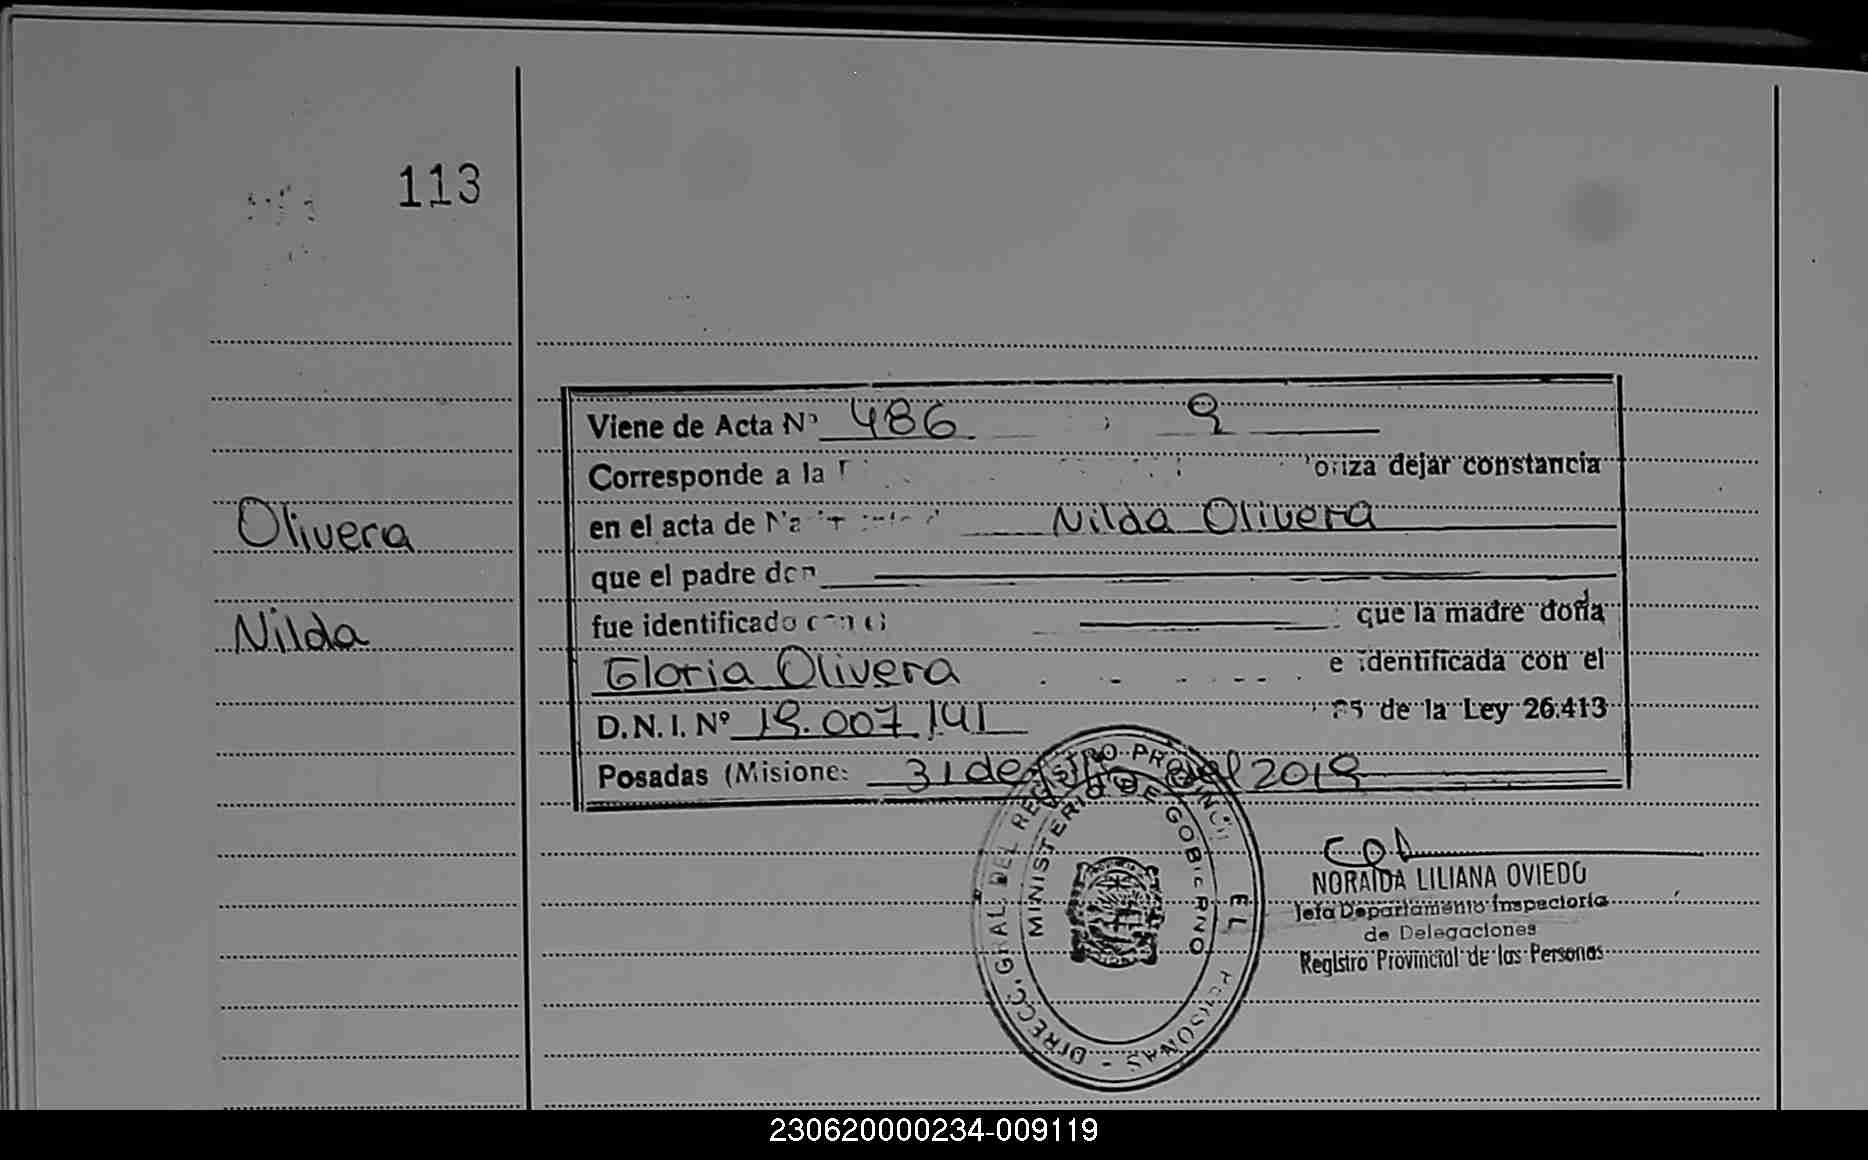 113
Viene de Acta Nº 486 9
Corresponde a la oriza dejar constancia
Olivera
en el acta de Nilda Olivera
que el padre don
Nilda
fue identificado con el que la madre doña
Gloria Olivera e identificada con el
D.N.I. Nº 19.007.141 85 de la Ley 26.413
Posadas (Misiones 31 de del 2019
DIRECC. GRAL. DEL REGISTRO PROVINCIAL PERSONAS
MINISTERIO DE GOBIERNO
NORAIDA LILIANA OVIEDO
Jefa Departamento Inspectoria
de Delegaciones
Registro Provincial de las Personas
230620000234-009119